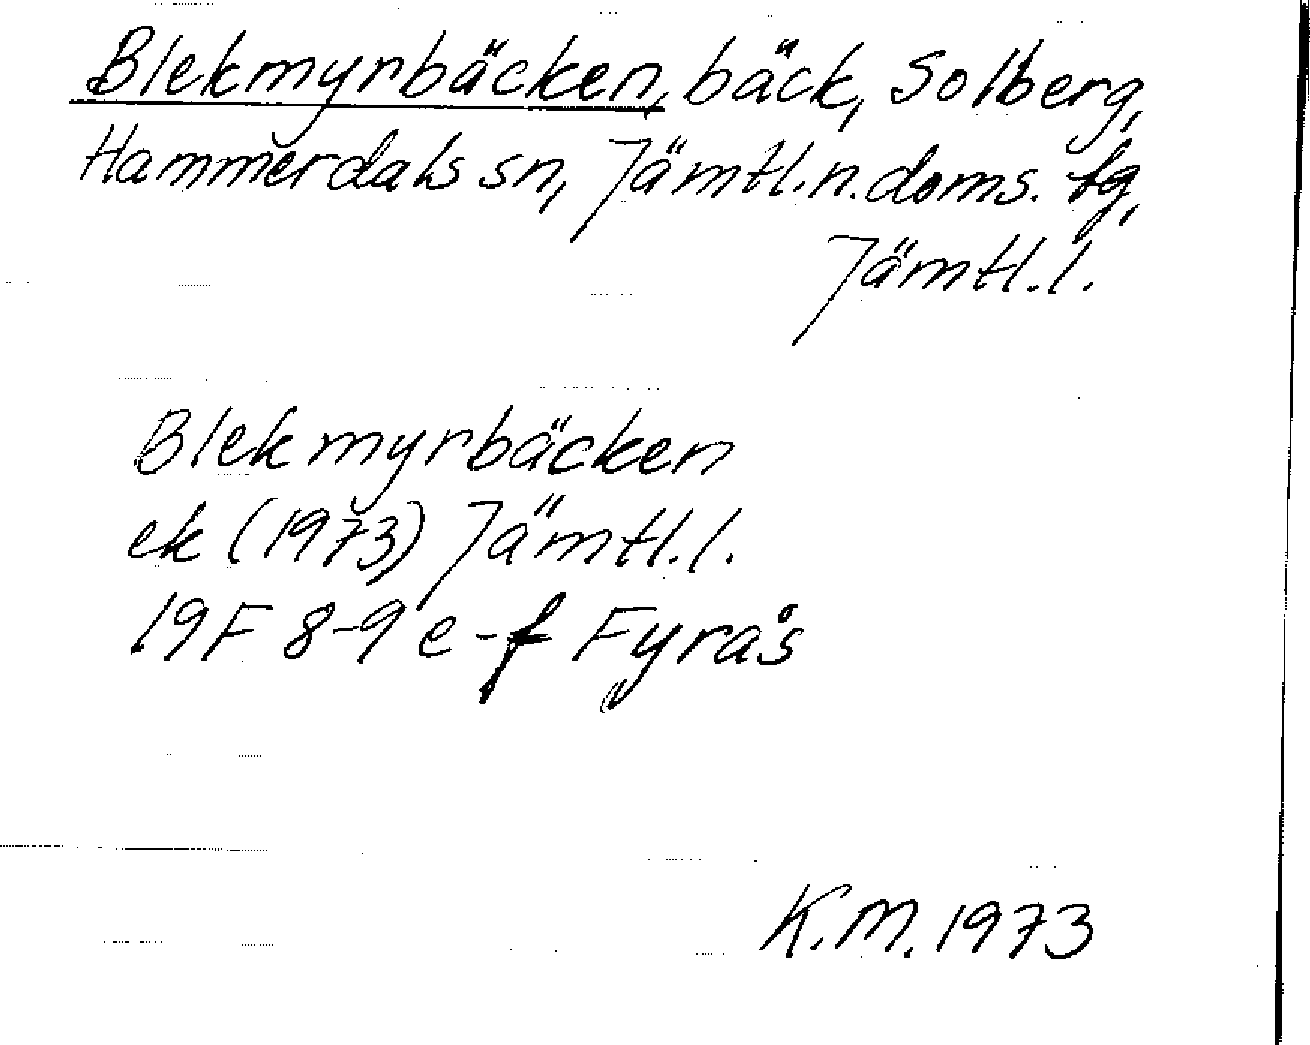 Blekmyrbäcken, bäck, Solberg,
Hammerdals sn, Jämtl. n. doms. tg,
Jämtl. l.
Blekmyrbäcken
ek (1973) Jämtl. l.
19F 8-9 e-f Fyrås
K.M. 1973